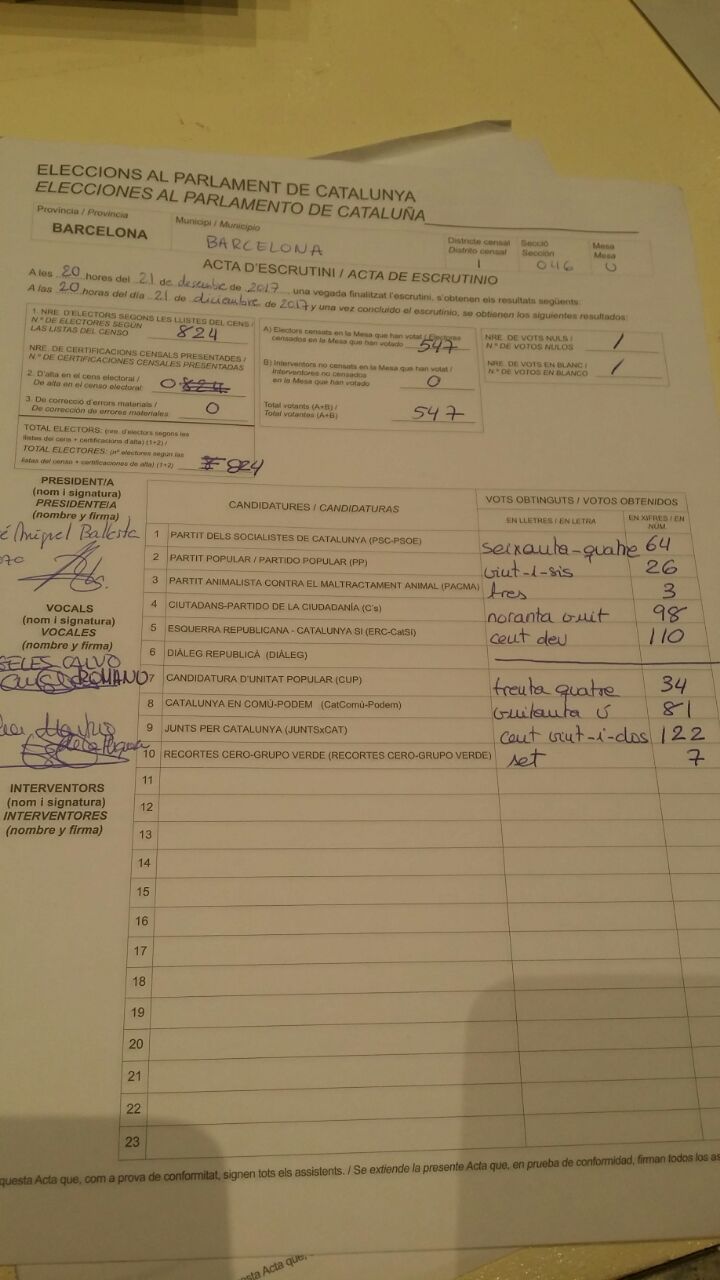 ELECCIONS AL PARLAMENT DE CATALUNYA
ELECCIONES AL PARLAMENTO DE CATALUÑA
Província / Provincia
BARCELONA
Municipi / Municipio
BARCELONA
Districte censal
Distrito censal
1
Secció
Sección
046
Mesa
Mesa
U
ACTA D'ESCRUTINI / ACTA DE ESCRUTINIO
A les 20 hores del 21 de desembre de 2017, una vegada finalitzat l'escrutini, s'obtenen els resultats següents:
A las 20 horas del día 21 de diciembre de 2017 y una vez concluido el escrutinio, se obtienen los siguientes resultados:
1. NRE. D'ELECTORS SEGONS LES LLISTES DEL CENS /
N.º DE ELECTORES SEGÚN
LAS LISTAS DEL CENSO 824
NRE. DE CERTIFICACIONS CENSALS PRESENTADES /
N.º DE CERTIFICACIONES CENSALES PRESENTADAS
2. D'alta en el cens electoral /
De alta en el censo electoral: 0 824
3. De correcció d'errors materials /
De corrección de errores materiales: 0
TOTAL ELECTORS: (nre. d'electors segons les
llistes del cens + certificacions d'alta) (1+2) /
TOTAL ELECTORES: (nº electores según las
listas del censo + certificaciones de alta) (1+2) 824
A) Electors censats en la Mesa que han votat / Electores
censados en la Mesa que han votado 547
B) Interventors no censats en la Mesa que han votat /
Interventores no censados
en la Mesa que han votado 0
Total votants (A+B) /
Total votantes (A+B) 547
NRE. DE VOTS NULS /
N.º DE VOTOS NULOS 1
NRE. DE VOTS EN BLANC /
N.º DE VOTOS EN BLANCO 1
PRESIDENT/A
(nom i signatura)
PRESIDENTE/A
(nombre y firma)
Miquel Ballesta
VOCALS
(nom i signatura)
VOCALES
(nombre y firma)
GELES CALVO
ROMANO
INTERVENTORS
(nom i signatura)
INTERVENTORES
(nombre y firma)
CANDIDATURES / CANDIDATURAS
VOTS OBTINGUTS / VOTOS OBTENIDOS
EN LLETRES / EN LETRA
EN XIFRES / EN NÚM.
1 PARTIT DELS SOCIALISTES DE CATALUNYA (PSC-PSOE) seixanta-quatre 64
2 PARTIT POPULAR / PARTIDO POPULAR (PP) vint-i-sis 26
3 PARTIT ANIMALISTA CONTRA EL MALTRACTAMENT ANIMAL (PACMA) tres 3
4 CIUTADANS-PARTIDO DE LA CIUDADANÍA (C's) noranta vuit 98
5 ESQUERRA REPUBLICANA - CATALUNYA SI (ERC-CatSI) cent deu 110
6 DIÀLEG REPUBLICÀ (DIÀLEG)
7 CANDIDATURA D'UNITAT POPULAR (CUP) trenta quatre 34
8 CATALUNYA EN COMÚ-PODEM (CatComú-Podem) vuitanta ú 81
9 JUNTS PER CATALUNYA (JUNTSxCAT) cent vint-i-dos 122
10 RECORTES CERO-GRUPO VERDE (RECORTES CERO-GRUPO VERDE) set 7
11
12
13
14
15
16
17
18
19
20
21
22
23
questa Acta que, com a prova de conformitat, signen tots els assistents. / Se extiende la presente Acta que, en prueba de conformidad, firman todos los as
esta Acta que,